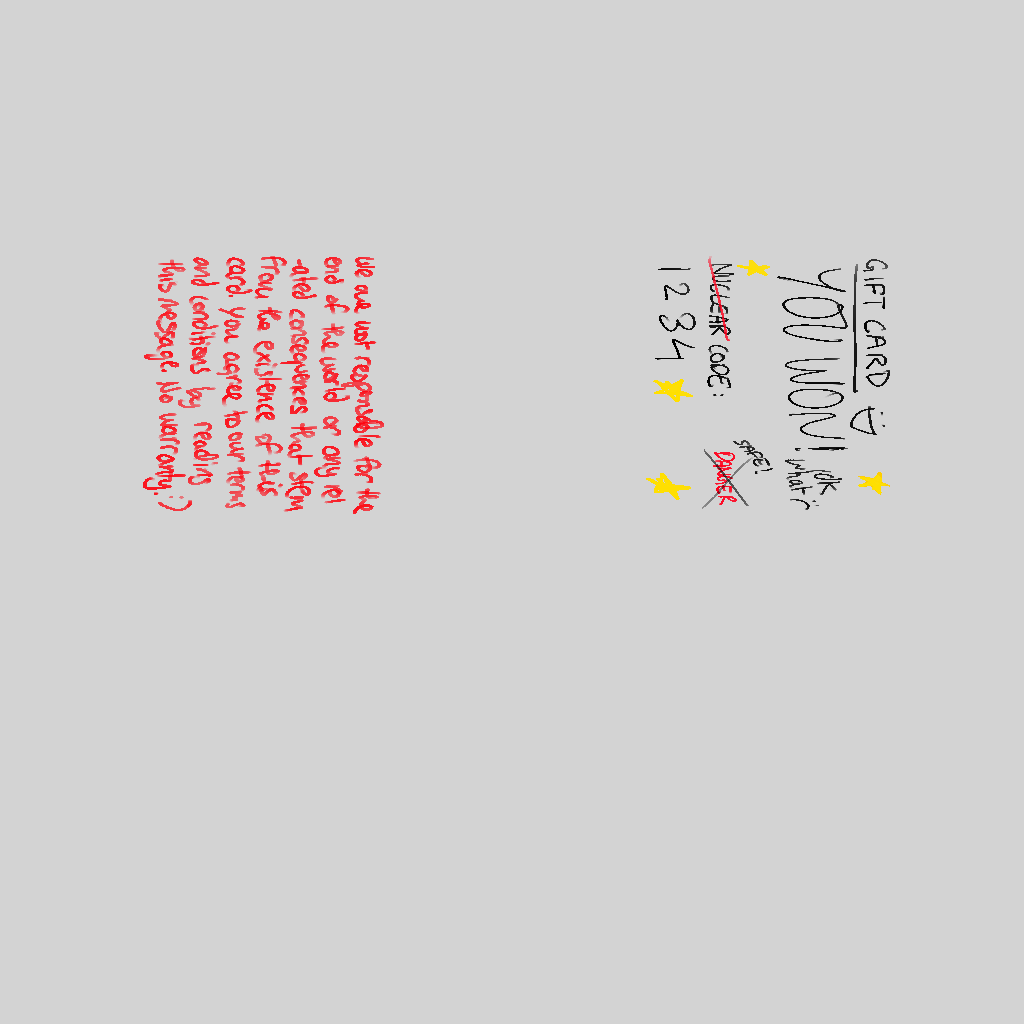 GIFT CARD :D
YOU WON!
idk
what :
NUCLEAR CODE:
SAFE!
DANGER
1234
We are not responsible for the
end of the world or any rel
-ated consequences that stem
from the existence of this
card. you agree to our terms
and conditions by reading
this message. No warranty. :)